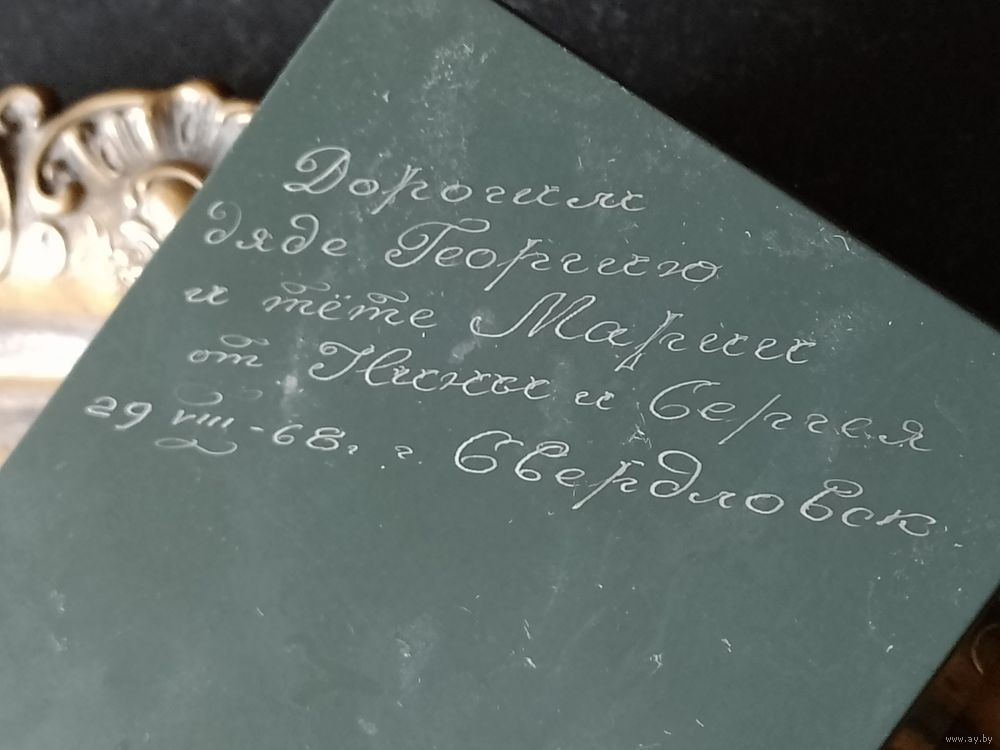 Дорогим
дяде Георгию
и тёте Марии
от Нины и Сергея
29 VIII - 68г. г. Свердловск
www.ay.by